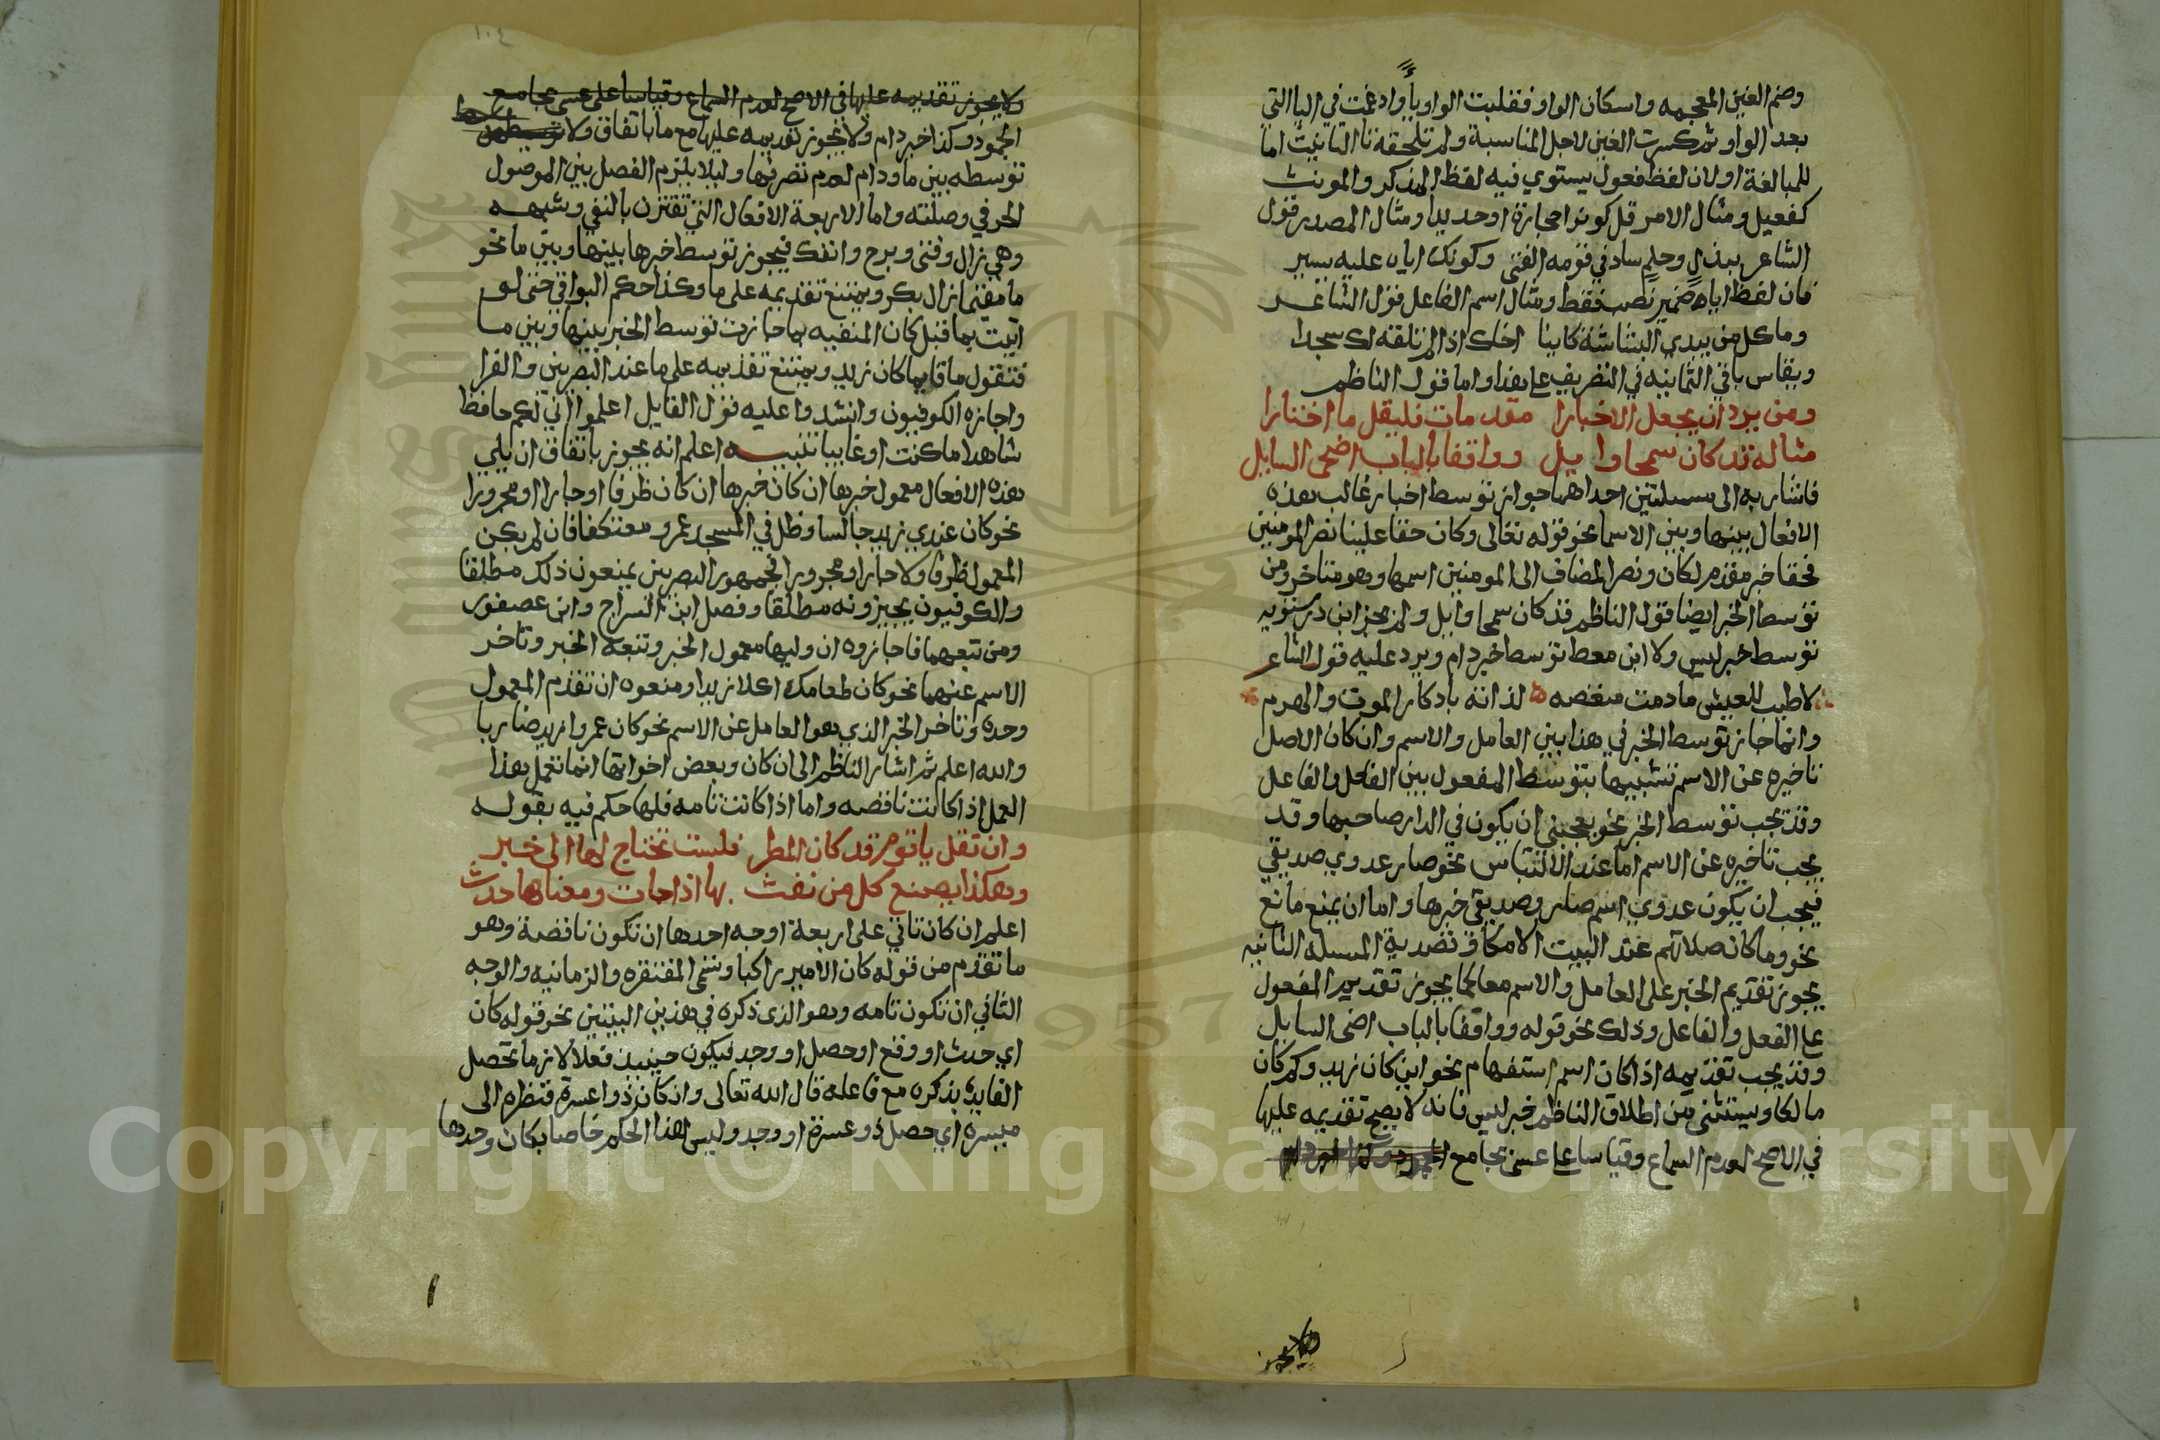 وضم الغين المعجمه واسكان الواو فقلبت الواو يأ وادغمت في اليا التي
بعد الواو ثم كسرت الغين لاجل المناسبة ولم تلحقه تا التانيث اما
للمبالغة او لان لفظ فعول يستوي فيه لفظ المذكر والمونث
كفعيل ومثال الامر قل كونوا حجارة او حديدا ومثال المصدر قول
الشاعر ببذل وحلم ساد في قومه الفتى وكونك اياه عليه يسير
فان لفظ اياه ضمير نصب فقط ومثال اسم الفاعل قول الشاعر
وما كل من يبدي البشاشة كاينا اخاك اذا لم تلفه لك منجدا
ويقاس باقي الثمانيه في التصريف على هذا واما قول الناظم
ومن يرد ان يجعل الاخبارا مقدمات فليقل ما اختارا
مثاله قد كان سمحا وايل وواقفا بالباب اضحى السايل
فاشار به الى مسلتين احداهما جواز توسط اخبار غالب هذه
الافعال بينها وبين الاسما نحو قوله تعالى وكان حقا علينا نصر المومنين
فحقا خبر مقدم لكان ونصر المضاف الى المومنين اسمها وهو متاخر ومن
توسط الخبر ايضا قول الناظم قد كان سمحا وايل ولم يجز ابن درستويه
توسط خبر ليس ولا ابن معط توسط خبر دام ويرد عليه قول الشاعر
لا طيب للعيش ما دمت منغصه لذاته بادكار الموت والهرم
وانما جاز توسط الخبر في هذا بين العامل والاسم وان كان الاصل
تاخيره عن الاسم تشبيها بتوسط المفعول بين الفعل والفاعل
وقد يجب توسط الخبر نحو يعجبني ان يكون في الدار صاحبها وقد
يجب تاخيره عن الاسم اما عند الالتباس نحو صار عدوي صديقي
فيجب ان يكون عدوي اسم صار وصديقي خبرها واما ان يمنع مانع
نحو وما كان صلاتهم عند البيت الا مكا وتصدية المسله الثانيه
يجوز تقديم الخبر على العامل والاسم معا كما يجوز تقديم المفعول
على الفعل والفاعل وذلك نحو قوله وواقفا بالباب اضحى السايل
وقد يجب تقديمه اذا كان اسم استفهام نحو اين كان زيد وكم كان
مالك ويستثنى من اطلاق الناظم خبر ليس فانه لا يصح تقديمه عليها
في الاصح لعدم السماع وقياسا على عسى بجامع
ولا يجوز
١٠٤
ولا يجوز تقديمه عليها في الاصح لعدم السماع وقياسا على عسى بجامع
الجمود وكذا خبر دام ولا يجوز تقديمه عليها مع ما باتفاق ولا
توسطه بين ما ودام لعدم تصرفها وليلا يلزم الفصل بين الموصول
الحرفي وصلته واما الاربعة الافعال التي تقترن بالنفي وشبهه
وهي زال وفتئ وبرح وانفك فيجوز توسط خبرها بينها وبين ما نحو
ما مقيما زال بكر ويمتنع تقديمه على ما وكذا حكم البواقي حتى لو
اتيت بما قبل كان المنفيه بما جازت توسط الخبر بينها وبين ما
فتقول ما قايما كان زيد ويمتنع تقديمه على ما عند البصريين والفرا
واجازه الكوفيون وانشدوا عليه قول القايل اعلموا اني لكم حافظ
شاهدا ما كنت او غايبا تنبيه اعلم انه يجوز باتفاق ان يلي
هذه الافعال معمول خبرها ان كان خبرها ان كان ظرفا او جارا ومجرورا
نحو كان عندي زيد جالسا وظل في المسجد عمرو معتكفا فان لم يكن
المعمول ظرفا ولا جارا ومجرورا فجمهور البصريين يمنعون ذلك مطلقا
والكوفيون يجيزونه مطلقا وفصل ابن السراج وابن عصفور
ومن تبعهما فاجازوه ان وليها معمول الخبر وتبعه الخبر وتاخر
الاسم عنهما نحو كان طعامك اكلا زيد ومنعوه ان تقدم المعمول
وحده وتاخر الخبر الذي هو العامل عن الاسم نحو كان عمرا زيد ضاربا
والله اعلم ثم اشار الناظم الى ان كان وبعض اخواتها انما تعمل هذا
العمل اذا كانت ناقصه واما اذا كانت تامه فلها حكم فيه بقوله
وان تقل يا قوم قد كان المطر فلست تحتاج لها الى خبر
وهكذا يصنع كل من نفث بها اذا جات ومعناها حدث
اعلم ان كان تاتي على اربعة اوجه احدها ان تكون ناقصة وهو
ما تقدم من قوله كان الامير راكبا وتسمى المفتقره والزمانيه والوجه
الثاني ان تكون تامه وهو الذى ذكره في هذين البيتين نحو قوله كان
اي حدث او وقع او حصل او وجد فيكون حينيذ فعلا لازما تحصل
الفايدة بذكره مع فاعله قال الله تعالى وان كان ذو اعسرة فنظرة الى
ميسره اي حصل ذو عسرة او وجد وليس هذا الحكم خاصا بكان وحدها
Copyright © King Saud University
1957